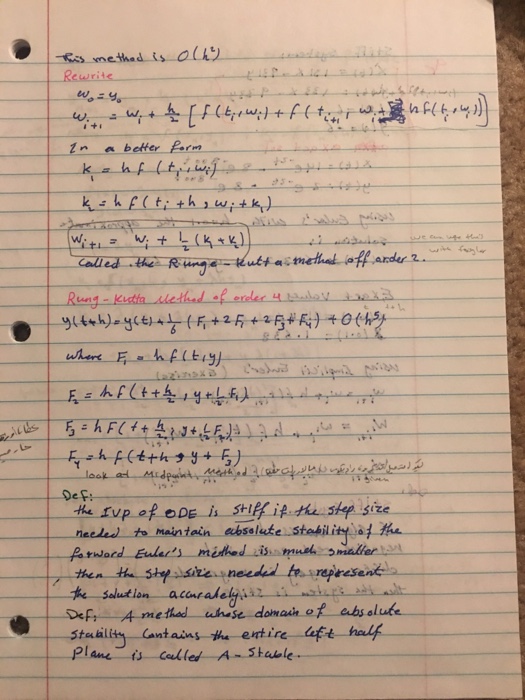 This method is O(h²)
Rewrite
w₀ = y₀
wᵢ₊₁ = wᵢ + h/2 [f(tᵢ, wᵢ) + f(tᵢ₊₁, wᵢ + h f(tᵢ, wᵢ))]
In a better form
k₁ = h f(tᵢ, wᵢ)
k₂ = h f(tᵢ + h, wᵢ + k₁)
wᵢ₊₁ = wᵢ + 1/2 (k₁ + k₂)
we can use this
with
called the Runge-Kutta method off order 2.
Rung-Kutta Method of order 4
y(t+h) = y(t) + 1/6 (F₁ + 2F₂ + 2F₃ + F₄) + O(h⁵)
where F₁ = h f(t, y)
F₂ = h f(t + h/2, y + 1/2 F₁)
F₃ = h F(t + h/2, y + 1/2 F₂)
F₄ = h f(t + h, y + F₃)
look at Midpoint Method
Def:
the IVP of ODE is stiff if the step size
needed to maintain absolute stability of the
forword Euler's method is much smaller
then the step size needed to represent
the solution accurately.
Def: A method whose domain of absolute
stability contains the entire left half
plane is called A-Stable.